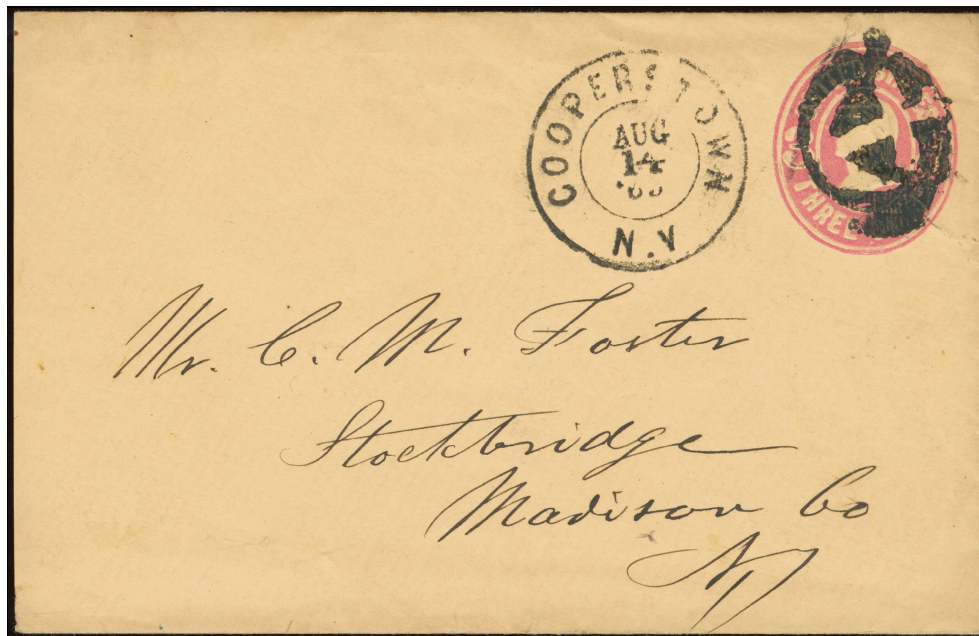 COOPERSTOWN
AUG
14
N.Y
THREE
Mr. C. M. Foster
Stockbridge
Madison Co
NY